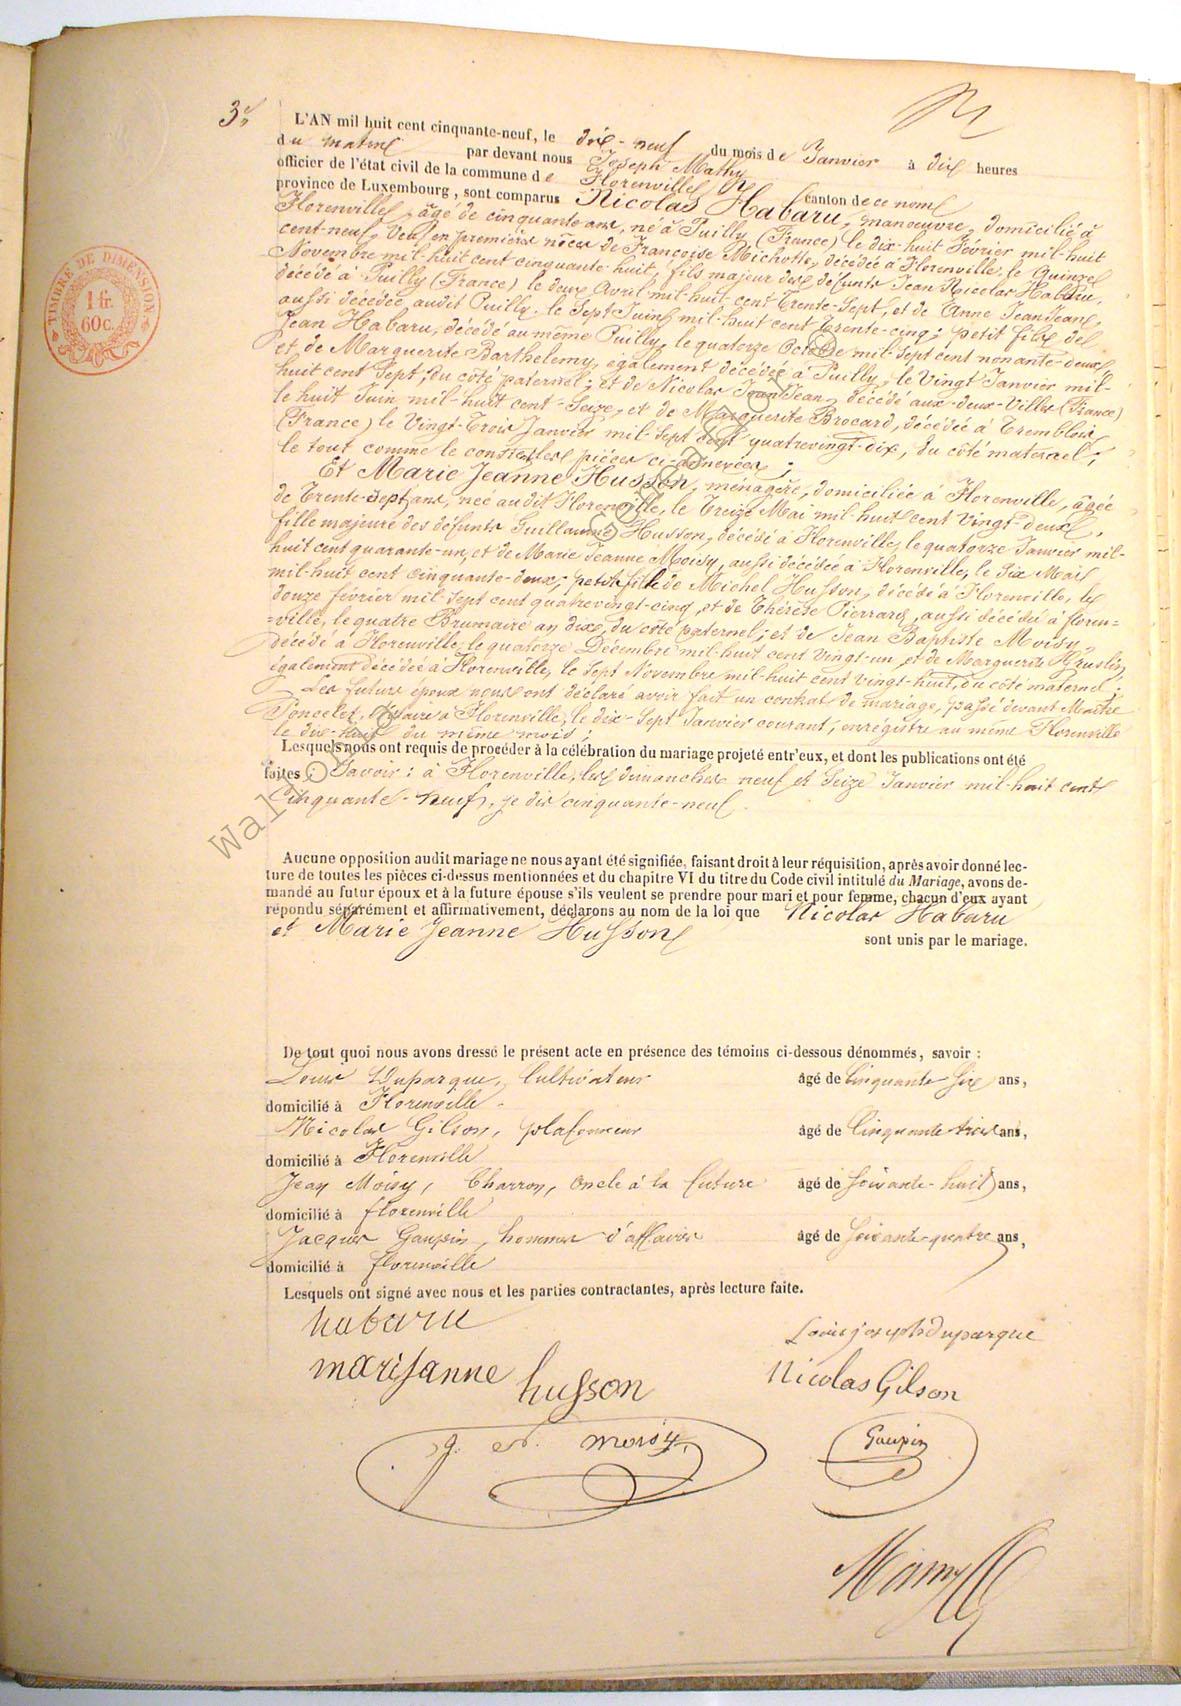 3e
L'AN mil huit cent cinquante-neuf, le dix-neuf du mois de Janvier à dix heures
du matin par devant nous Joseph Mathy
officier de l'état civil de la commune de Florenville canton de ce nom
province de Luxembourg, sont comparus Nicolas Habaru, manoeuvre, domicilié à
Florenville, âgé de cinquante ans, né à Puilly (France) le dix-huit Février mil-huit
cent-neuf, Veuf en premières nôces de Françoise Michotte, décédée à Florenville, le Quinze
Novembre mil-huit cent cinquante-huit, fils majeur des défunts Jean Nicolas Habaru,
décédé à Puilly (France) le deux Avril mil-huit-cent Trente-Sept, et de Anne JeanJean,
aussi décédée audit Puilly, le Sept Juin mil-huit cent Trente-cinq; petit fils de
Jean Habaru, décédé au même Puilly, le quatorze Octobre mil-Sept cent nonante-deux,
et de Marguerite Barthelemy, également décédée à Puilly, le Vingt Janvier mil-
huit cent Sept, du côté paternel; et de Nicolas JeanJean, décédé aux-deux-Villes (France)
le huit Juin mil-huit cent-Seize, et de Marguerite Brocard, décédée à Tremblois
(France) le Vingt-Trois Janvier mil-Sept cent quatrevingt-dix, du côté maternel;
le tout comme le constatent les pièces ci-annexées;
Et Marie Jeanne Husson, ménagère, domiciliée à Florenville, âgée
de Trente-Sept ans, née audit Florenville, le Treize Mai mil-huit cent Vingt-deux,
fille majeure des défunts Guillaume Husson, décédé à Florenville, le quatorze Janvier mil-
huit cent quarante-un, et de Marie Jeanne Moisy, aussi décédée à Florenville, le Six Mars
mil-huit cent cinquante-deux; petite fille de Michel Husson, décédé à Florenville, le
douze février mil-Sept cent quatrevingt-cinq, et de Thérèse Pierrard, aussi décédée à floren-
-ville, le quatre Brumaire an dix, du côté paternel; et de Jean Baptiste Moisy,
décédé à Florenville, le quatorze Décembre mil-huit cent Vingt-un, et de Marguerite
également décédée à Florenville, le Sept Novembre mil-huit cent vingt-huit, du côté maternel;
Les futurs époux nous ont déclaré avoir fait un contrat de mariage, passé devant Maître
Poncelet, Notaire à Florenville, le dix-Sept Janvier courant, enrégistré au même Florenville
le dix-huit du même mois;
Lesquels nous ont requis de procéder à la célébration du mariage projeté entr'eux, et dont les publications ont été
faites; Savoir: à Florenville, les dimanches neuf et Seize Janvier mil-huit cent
Cinquante-neuf, je dis cinquante-neuf.
Aucune opposition audit mariage ne nous ayant été signifiée, faisant droit à leur réquisition, après avoir donné lec-
ture de toutes les pièces ci-dessus mentionnées et du chapitre VI du titre du Code civil intitulé du Mariage, avons de-
mandé au futur époux et à la future épouse s'ils veulent se prendre pour mari et pour femme, chacun d'eux ayant
répondu séparément et affirmativement, déclarons au nom de la loi que Nicolas Habaru
et Marie Jeanne Husson sont unis par le mariage.
De tout quoi nous avons dressé le présent acte en présence des témoins ci-dessous dénommés, savoir :
Louis Duparque, Cultivateur âgé de Cinquante six ans,
domicilié à Florenville.
Nicolas Gilson, plafonneur âgé de Cinquante trois ans,
domicilié à Florenville
Jean Moisy, Charron, oncle à la future âgé de Soixante-huit ans,
domicilié à florenville
Jacques Gaupin, hommes d'affaires âgé de Soixante-quatre ans,
domicilié à florenville
Lesquels ont signé avec nous et les parties contractantes, après lecture faite.
habaru
Louis joseph duparque
marijanne husson
Nicolas Gilson
moisy
Gaupin
TIMBRE DE DIMENSION
1 fr.
60c.